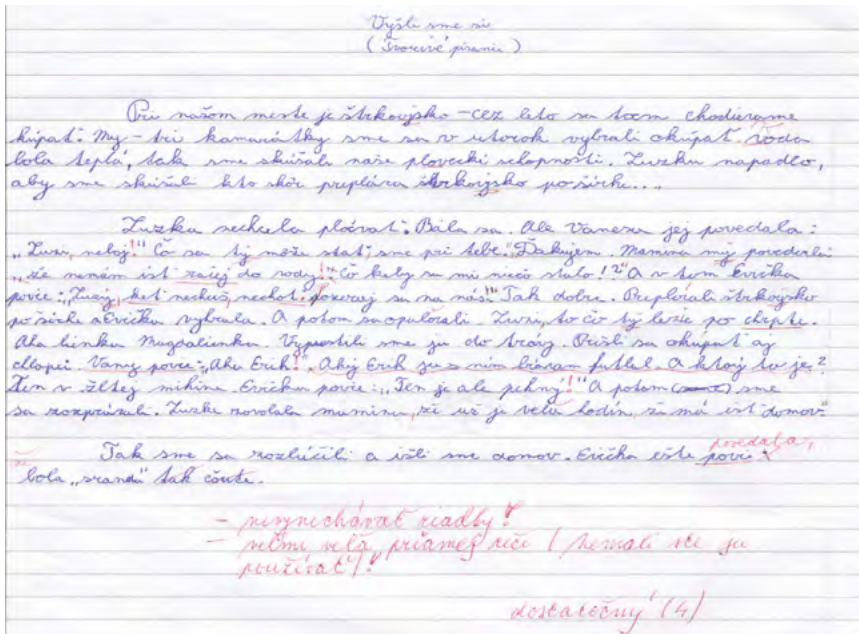 Vyšli sme si
(Tvorivé písanie)
Pri našom meste je štrkovjsko - cez leto sa tam chodievame
kúpať. My - tri kamarátky sme sa v utorok vybrali okúpať. Voda
bola teplá, tak sme skúšali naše plavecki schopnosti. Zuzku napadlo,
aby sme skúšali kto skôr prepláva štrkovjsko po šírke...
Zuzka nechcela plávať. Bála sa. Ale Vanesa jej povedala:
„Zuzi, neboj!" Čo sa tj može stať, sme pri tebe." Ďakujem. Mamina mj povedala
„že nemám isť račej do vody!" Čo keby sa mi niečo stalo!?" A v tom Evička
povie: „Zuzj, keť nechceš, nechoť. Pozeraj sa na nás!" Tak dobre. Preplávali štrkovjsko
po šírke a Evička vyhrala. A potom sa opaľovali. Zuzi, to čo tj lezie po chrpte.
Aha linka Magdalienka. Vypustili sme ju do trávy. Prišli sa okúpať aj
chlapci. Vanij povie: „Aha Erik!". Ahj Erik js s ním hrávam futbal. A ktorj to je?
Ten v žltej mikine. Evička povie: „Ten je ale pekný!" A potom sme
sa rozprávali. Zuzke zavolala mamina, že už je veľa hodín, že má isť domov."
Tak sme sa rozlúčili a išli sme domov. Evička ešte povie povedala,
bola „sranda" tak čaute.
- nevynechávať riadky!
- veľmi veľa priamej reči (nemali ste ju
používať)!
dostatočný (4)